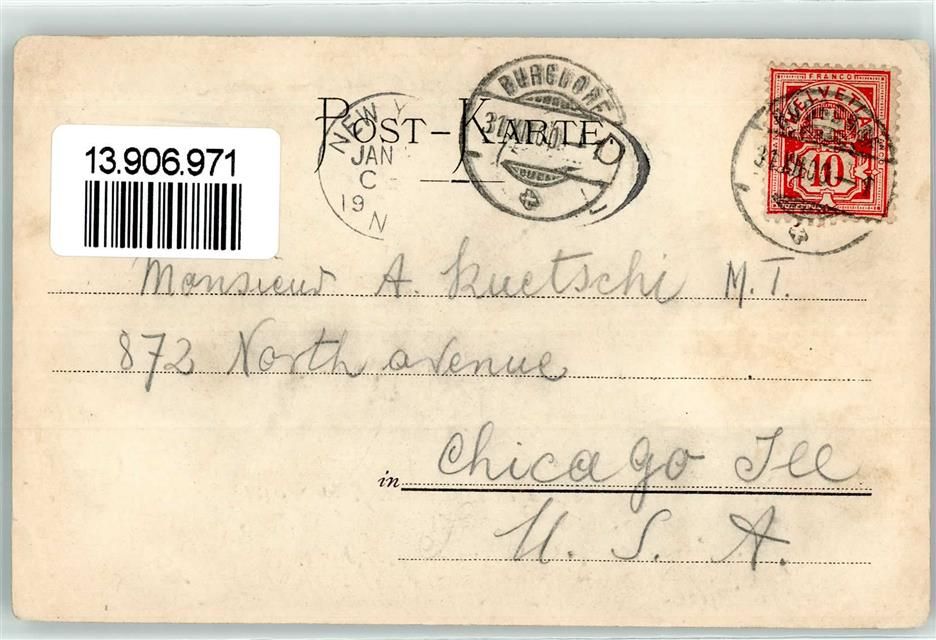 FRANCO
HELVETIA
10
BURGDORF
NEW Y
POST-KARTE
JAN
C
19
N
13.906.971
Monsieur A. Kuetschi M. T.
872 North avenue
in Chicago Ill
U. S. A.